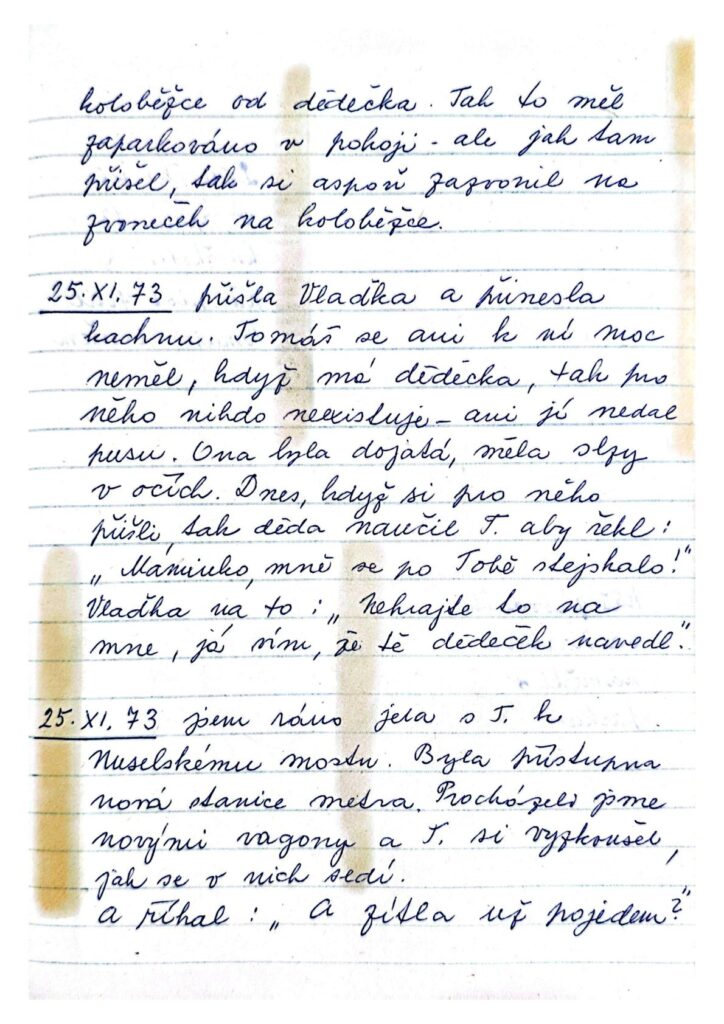 koloběžce od dědečka. Tak to měl
zaparkováno v pokoji - ale jak tam
přišel, tak si aspoň zazvonil na
zvoneček na koloběžce.
25. XI. 73 přišla Vlaďka a přinesla
kachnu. Tomáš se ani k ní moc
neměl, když má dědečka, tak pro
něho nikdo neexistuje - ani jí nedal
pusu. Ona byla dojatá, měla slzy
v očích. Dnes, když si pro něho
přišli, tak děda naučil T. aby řekl:
„Maminko, mně se po Tobě stejskalo!"
Vlaďka na to: „Nehrajte to na
mne, já vím, že tě dědeček navedl".
25. XI. 73 jsem ráno jela s T. k
Nuselskému mostu. Byla přístupna
nová stanice metra. Procházeli jsme
novými vagony a T. si vyzkoušel,
jak se v nich sedí.
A říkal: „A zítla už pojedem?"